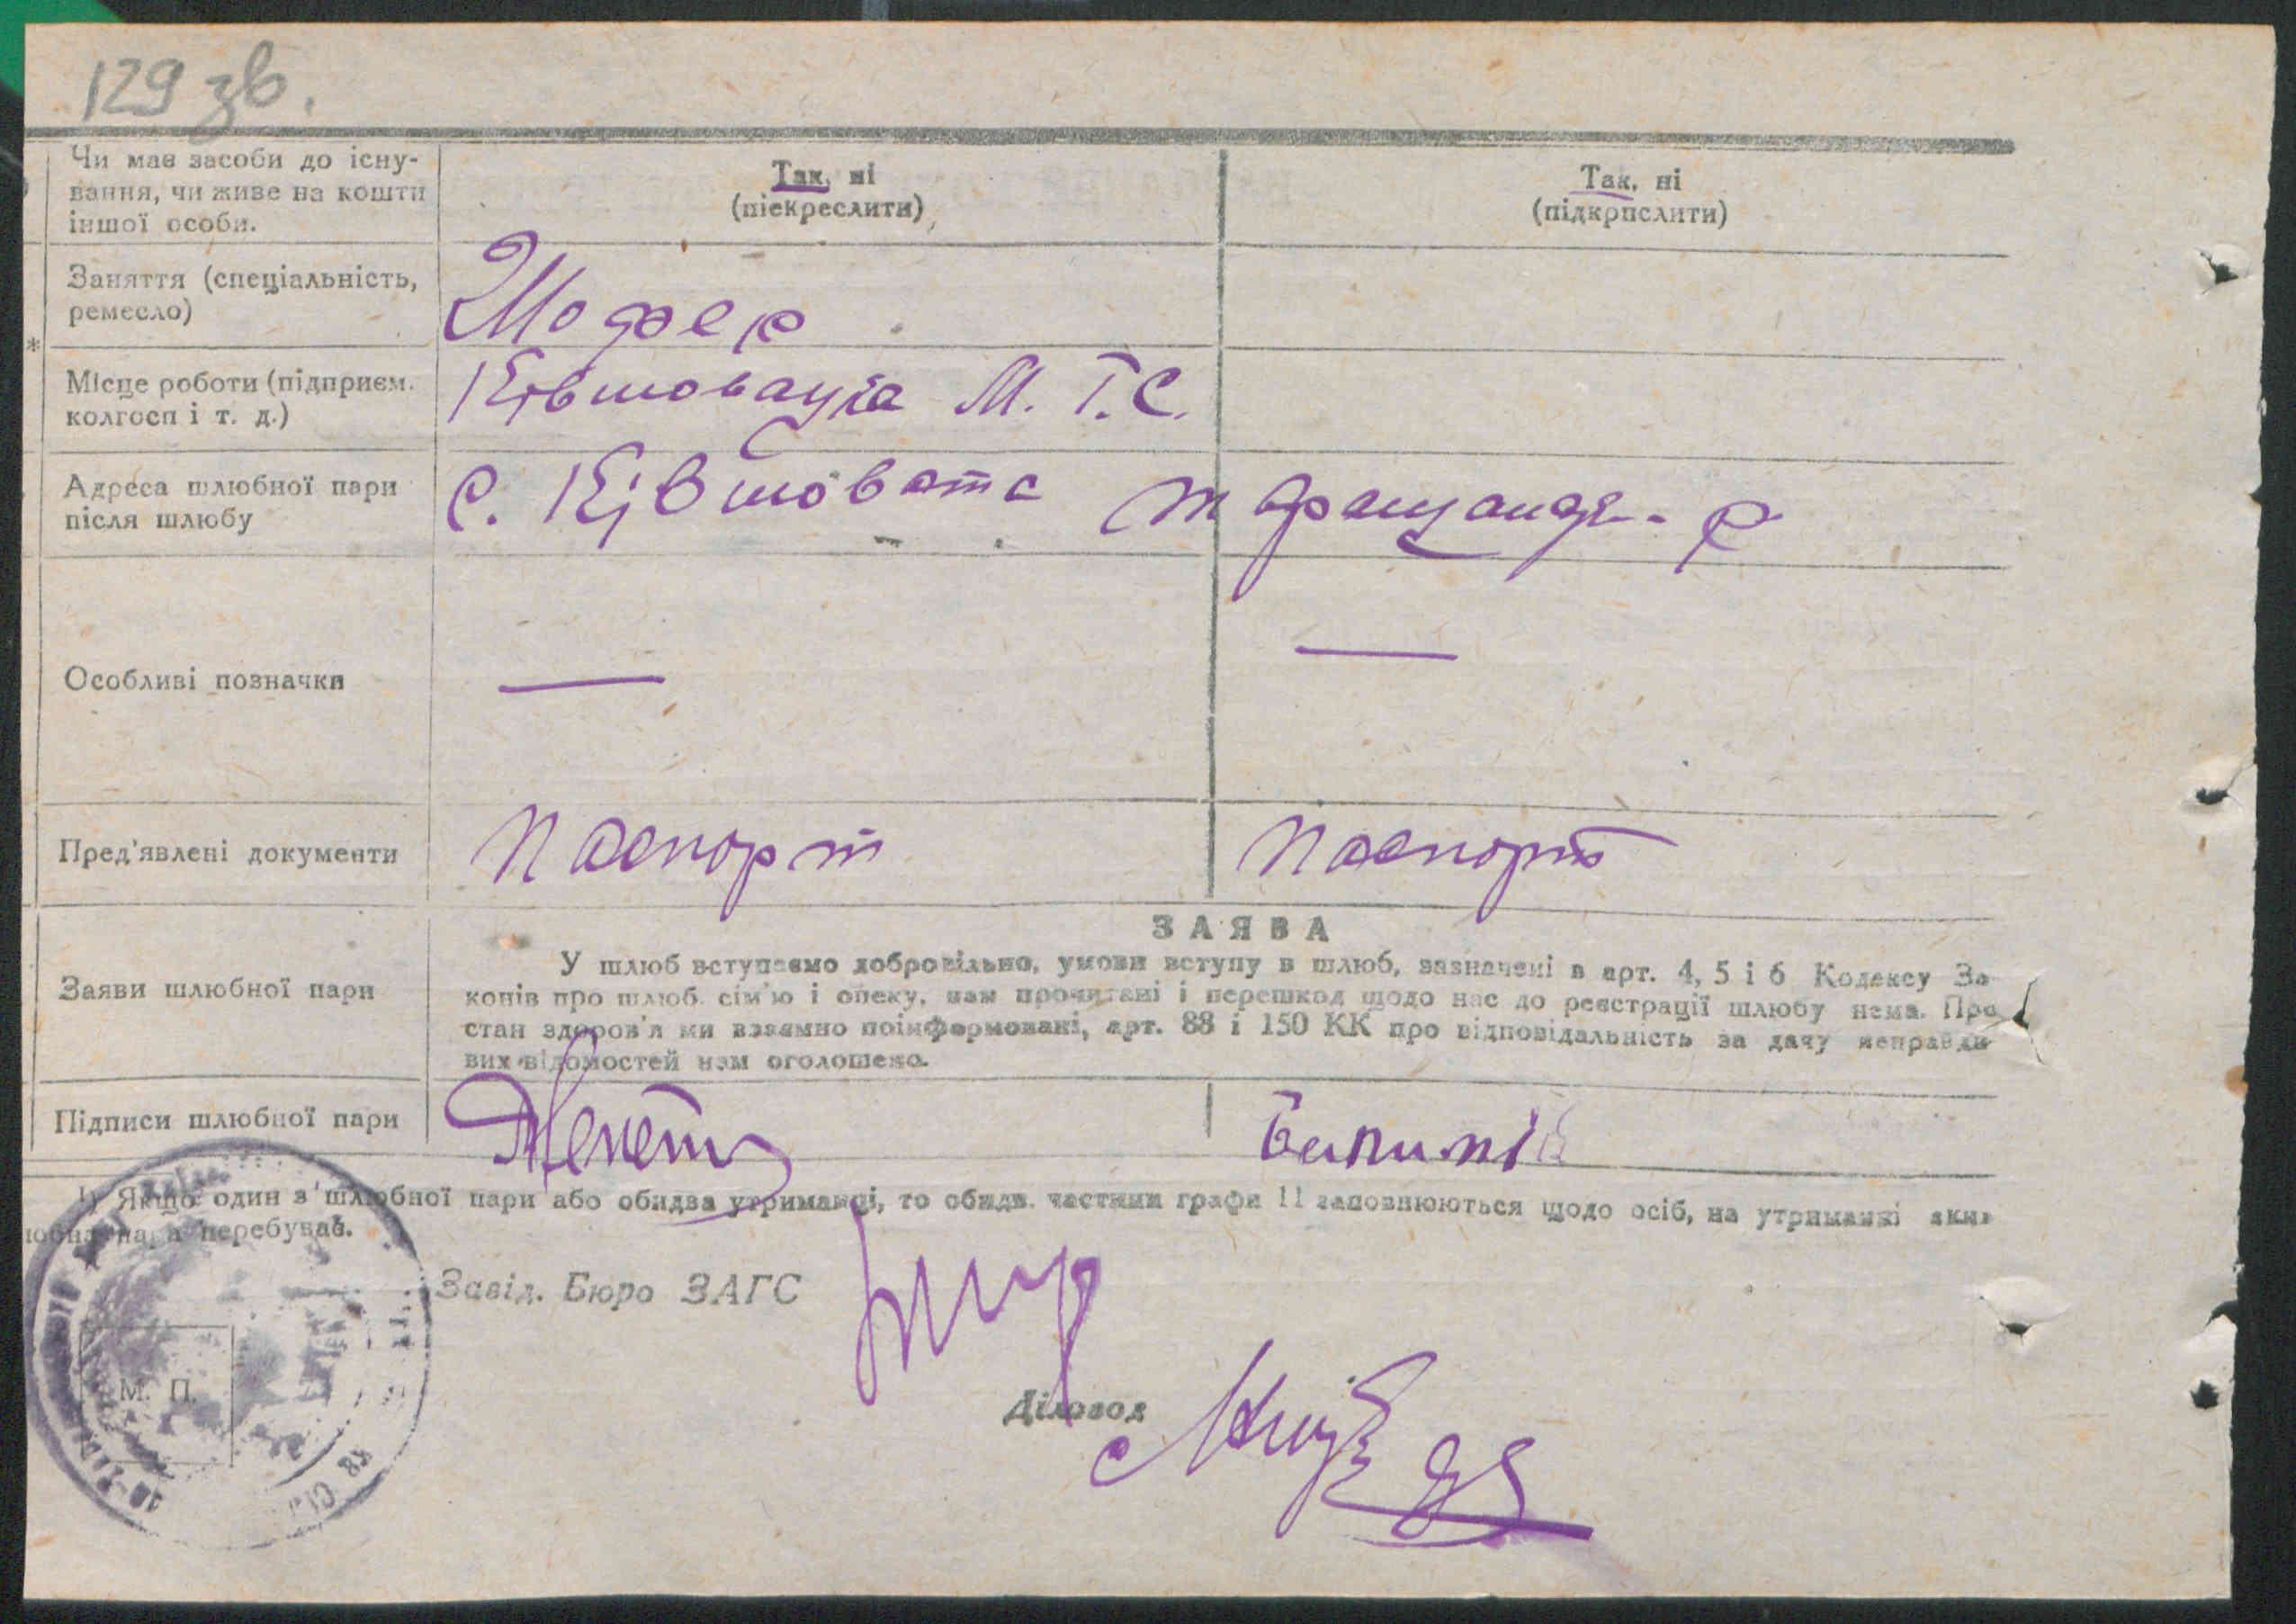 129 зв.
Чи має засоби до існу-
вання, чи живе на кошти
іншої особи.
Так, ні
(піекреслити)
Так, ні
(підкрпслити)
Заняття (спеціальність,
ремесло)
Шофер
*
Місце роботи (підприєм.
колгосп і т. д.)
Ківшовацка М. Т. С.
Адреса шлюбної пари
після шлюбу
с. Ківшовата Таращанськ. р
Особливі позначки
—
—
Пред'явлені документи
Паспорт
Паспорт
ЗАЯВА
Заяви шлюбної пари
У шлюб вступаємо добровільно, умови вступу в шлюб, зазначені в арт. 4, 5 і 6 Кодексу За-
конів про шлюб. сім'ю і опеку, нам прочитані і перешкод щодо нас до реєстрації шлюбу нема. Про
стан здоров'я ми взаємно поінформовані, арт. 88 і 150 КК про відповідальність за дачу неправди-
вих відомостей нам оголошено.
Підписи шлюбної пари
1) Якщо один з шлюбної пари або обидва утриманці, то обидв. частини графи 11 заповнюються щодо осіб, на утриманні яких
шлюбна пара перебуває.
Завід. Бюро ЗАГС
М. П.
Діловод